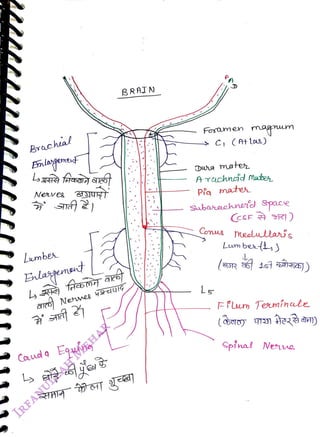 BRAIN
P
A
D
Foramen magnum
C₁ (Atlas)
Brachial
Enlargement
↳ इससे निकलने वाली
Nerves अग्रपादों
में जाती है।
Dura mater
Arachnoid Mater
Pia mater
Subarachnoid Space
(CSF से भरा)
Conus Medullaris
Lumber (L₁)
Lumber
Enlargement
↳ इससे निकलने वाली
वाली Nerves पश्चपाद
में जाती है।
L₅
Filum Terminale
(केवल पाया मेटर से बना)
Cauda Equina
Spinal Nerve
↳ घोड़े की पूंछ के
समान
गुच्छा